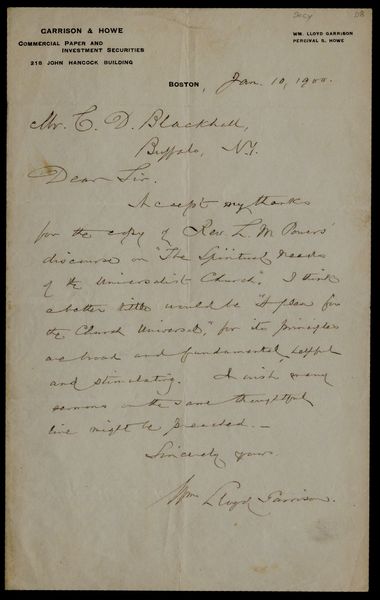 Decy
DB
GARRISON & HOWE
COMMERCIAL PAPER AND
INVESTMENT SECURITIES
218 JOHN HANCOCK BUILDING
WM. LLOYD GARRISON
PERCIVAL S. HOWE
BOSTON, Jan. 10, 1900.
Mr. C. D. Blackhall,
Buffalo, N.Y.
Dear Sir.
Accept my thanks
for the copy of Rev. L. M. Powers'
discourse on "The Spiritual Needs
of the Universalist Church". I think
a better title would be "A plea for
the Church Universal," for its principles
are broad and fundamental, helpful
and stimulating. I wish many
sermons on the same thoughtful
line might be preached. —
Sincerely yours.
Wm Lloyd Garrison.